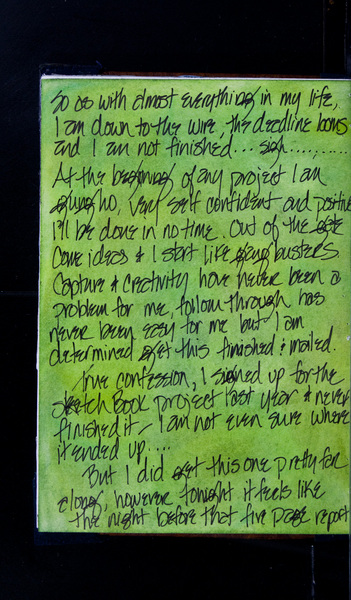 So as with almost everything in my life,
I am down to the wire, the deadline looms
and I am not finished... sigh..........
At the beginning of any project I am
gung ho, very self confident and positive
I'll be done in no time. Out of the gate
come ideas & I start like gang busters
Capture & Creativity have never been a
problem for me, follow through has
never been easy for me but I am
determined get this finished & mailed.
True confession, I signed up for the
Sketch Book project last year & never
finished it, I am not even sure where
it ended up....
But I did get this one pretty far
along, however tonight it feels like
the night before that five page report